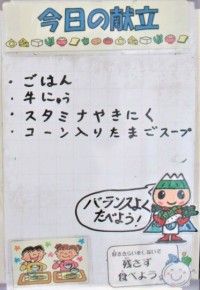 今日の献立
・ごはん
・牛にゅう
・スタミナやきにく
・コーン入りたまごスープ
バランスよく
たべよう!
好ききらいをしないで
残さず
食べよう